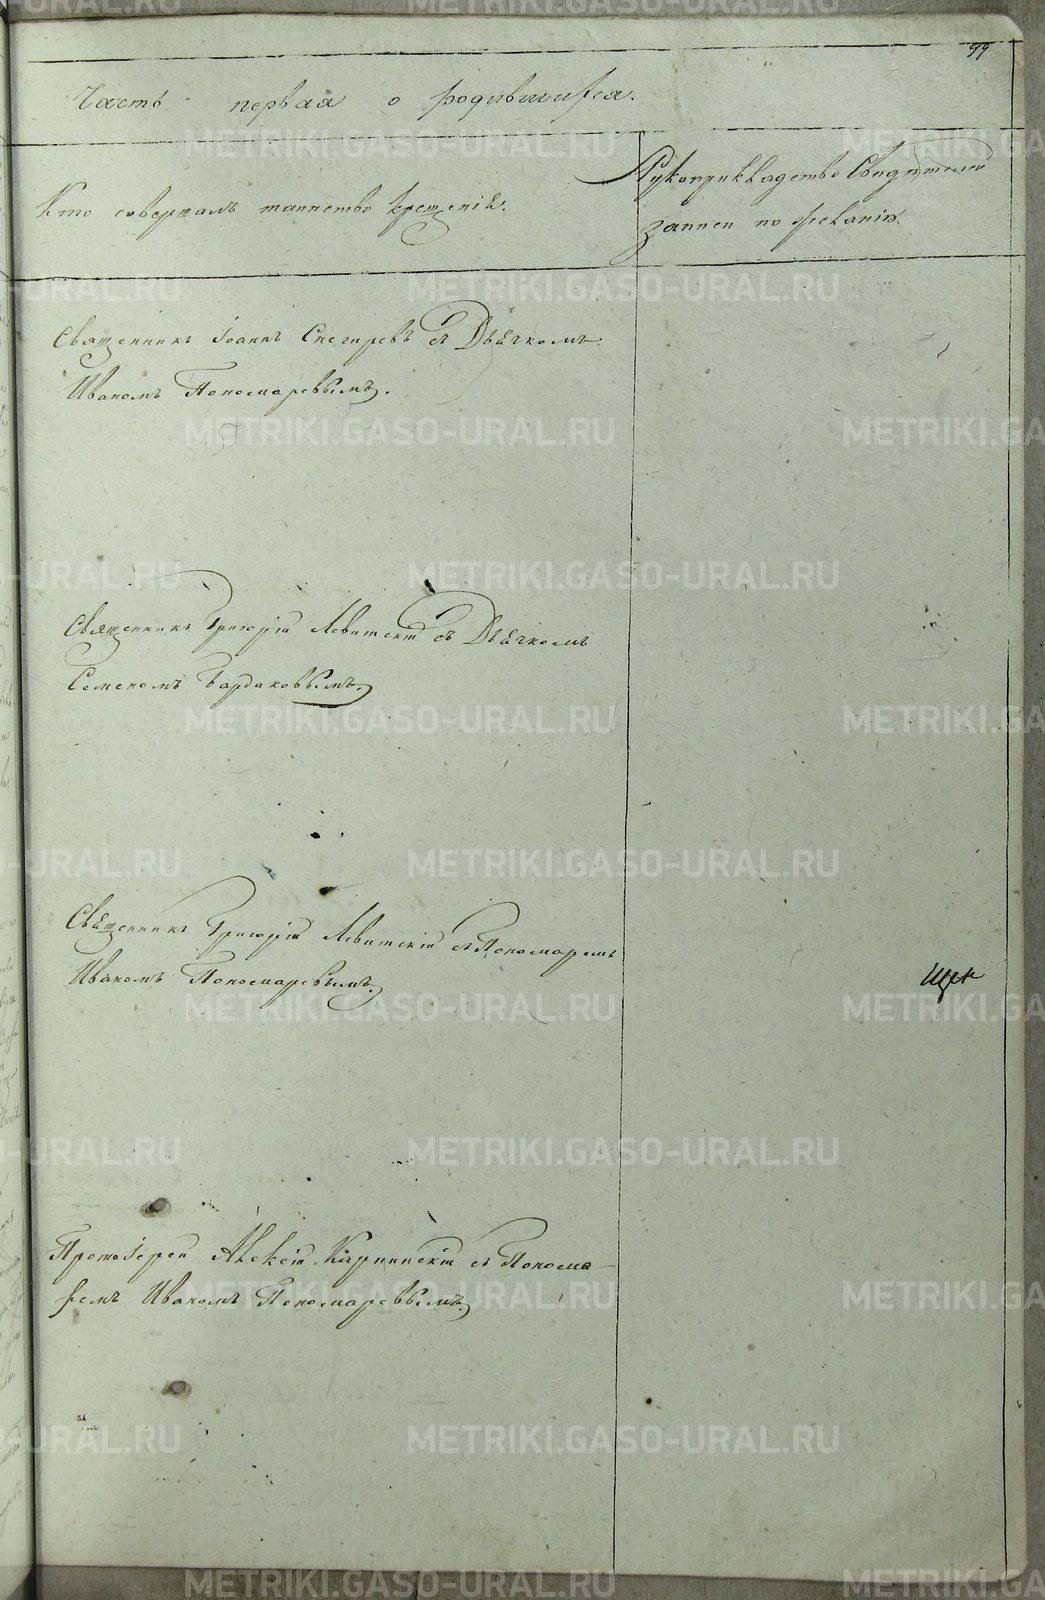 99
Часть первая о родившихся.
Кто совершалъ таинство крещенія.
Рукоприкладство Свидѣтелей
записи по желанію.
Священникъ Іоаннъ Снегиревъ съ Дьячкомъ
Иваномъ Пономаревымъ.
Священникъ Григорій Левитскій съ Дьячкомъ
Семеномъ Бардаковымъ.
Священникъ Григорій Левитскій съ Пономаремъ
Иваномъ Пономаревымъ.
Протоіерей Алексій Карпинскій съ Понома-
ремъ Иваномъ Пономаревымъ.
METRIKI.GASO-URAL.RU